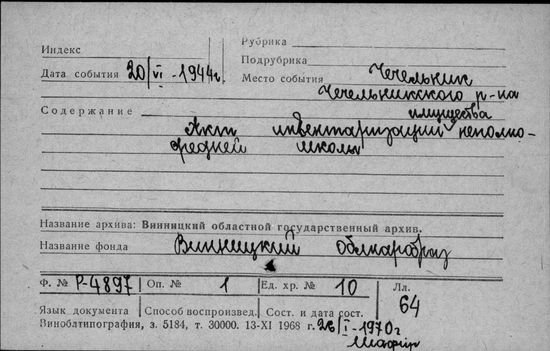 Индекс
Рубрика
Подрубрика
Дата события 20/VI-1944г.
Место события Чечельник
Чечельникского р-на
Содержание имущества
Акт инвентаризации неполно-
средней школы
Название архива: Винницкий областной государственный архив.
Название фонда Винницкий облнаробраз
Ф. № Р-4897 Оп. № 1 Ед. хр. № 10 Лл. 64
Язык документа Способ воспроизвед. Сост. и дата сост.
Виноблтипография, з. 5184, т. 30000. 13-XI 1968 г. 26/I-1970г